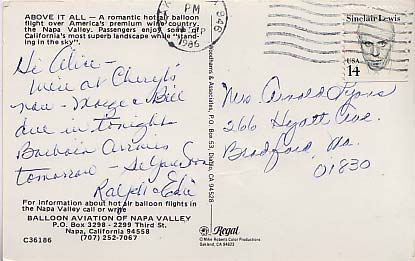 ABOVE IT ALL — A romantic hot air balloon
flight over America's premium wine country,
the Napa Valley. Passengers enjoy some of
California's most superb landscape while "stand-
ing in the sky".
Hi Alice —
We're at Cheryl's
now — Marge & Bill
due in tonight
Barbara arrives
tomorrow — See you soon
Ralph & Edie
For information about hot air balloon flights in
the Napa Valley call or write
BALLOON AVIATION OF NAPA VALLEY
P.O. Box 3298 - 2299 Third St.
Napa, California 94558
(707) 252-7067
C36186
& Associates, P.O. Box 53, Daly City, CA
PM
SEP
1986
946
Sinclair Lewis
USA
14
Mrs Arnold Lyons
266 Hyatt Ave.
Bradford, Ma.
01830
Regal
© Mike Roberts Color Productions
Oakland, CA 94623